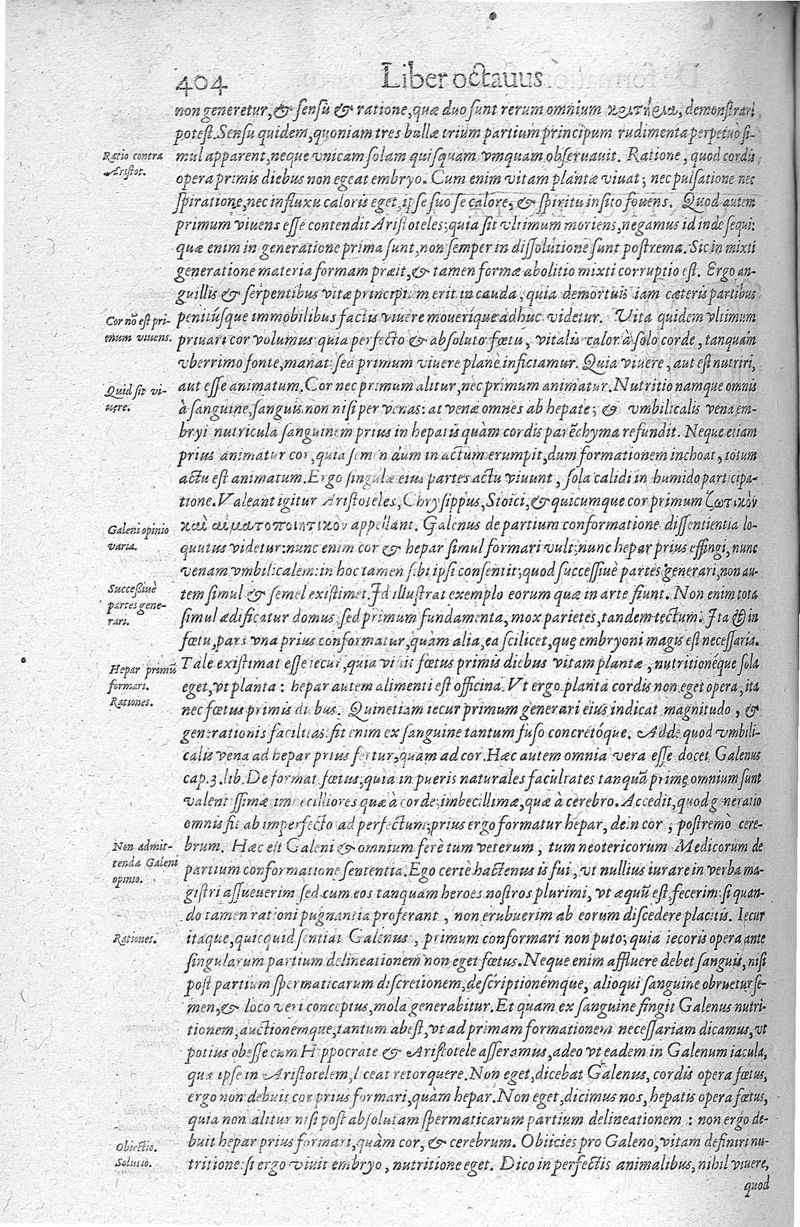 404
Liber octavus
non generetur, & sensũ & ratione, quæ duo sunt rerum omnium κριτήρια, demonstrari
potest. Sensu quidem, quoniam tres bullæ trium partium principum rudimenta perpetuò si-
Ratio contra
Aristot.
mul apparent, neque vnicam solam quisquam vmquam obseruauit. Ratione, quod cordis
opera primis diebus non egeat embryo. Cum enim vitam plantæ viuat; nec pulsatione nec
spiratione, nec influxu caloris eget, ipse suo se calore, & spiritu insito fouens. Quod autem
primum viuens esse contendit Aristoteles; quia sit vltimum moriens, negamus id inde sequi:
quæ enim in generatione prima sunt, non semper in dissolutione sunt postrema. Sic in mixti
generatione materia formam præit, & tamen formæ abolitio mixti corruptio est. Ergo an-
guillis & serpentibus vitæ principium erit in cauda, quia demortuis iam cæteris partibus
Cor nõ est pri-
mum viuens.
penitúsque immobilibus factis viuere mouerique adhuc videtur. Vita quidem vltimum
priuari cor volumus quia perfecto & absoluto fœtu, vitalis calor à solo corde, tanquam
vberrimo fonte, manat: sed primum viuere planè inficiamur. Quia viuere, aut est nutriri,
Quid sit vi-
uere.
aut esse animatum. Cor nec primum alitur, nec primum animatur. Nutritio namque omnis
à sanguine, sanguis non nisi per venas: at venæ omnes ab hepate; & vmbilicalis vena em-
bryi nutricula sanguinem prius in hepatis quàm cordis parẽchyma refundit. Neque etiam
prius animatur cor, quia semen dum in actum erumpit, dum formationem inchoat, totum
actu est animatum. Ergo singulæ eius partes actu viuunt, sola calidi in humido participa-
tione. Valeant igitur Aristoteles, Chrysippus, Stoici, & quicumque cor primum ζωτικὸν
Galeni opinio
varia.
καὶ αἱματοποιητικὸν appellant. Galenus de partium conformatione dissentientia lo-
quutus videtur: nunc enim cor & hepar simul formari vult; nunc hepar prius effingi, nunc
venam vmbilicalem: in hoc tamen sibi ipsi consentit; quod successiuè partes generari, non au-
Successiuè
partes gene-
rari.
tem simul & semel existimet. Id illustrat exemplo eorum quæ in arte fiunt. Non enim tota
simul ædificatur domus, sed primum fundamenta, mox parietes, tandem tectum. Ita & in
fœtu, pars vna prius conformatur, quam alia, ea scilicet, quę embryoni magis est necessaria.
Hepar primũ
formari.
Rationes.
Tale existimat esse iecur, quia viuit fœtus primis diebus vitam plantæ, nutritionéque sola
eget, vt planta: hepar autem alimenti est officina. Vt ergo planta cordis non eget opera, ita
nec fœtus primis diebus. Quinetiam iecur primum generari eius indicat magnitudo, &
generationis facilitas: fit enim ex sanguine tantum fuso concretóque. Adde quod vmbili-
calis vena ad hepar prius fertur, quam ad cor. Hæc autem omnia vera esse docet Galenus
cap. 3. lib. De format. fœtus; quia in pueris naturales facultates tanquã primę omnium sunt
valentissimæ imbecilliores quæ à corde; imbecillimæ, quæ à cerebro. Accedit, quod generatio
omnis fit ab imperfecto ad perfectum; prius ergo formatur hepar, dein cor; postremò cere-
Non admit-
tenda Galeni
opinio.
brum. Hæc est Galeni & omnium ferè tum veterum, tum neotericorum Medicorum de
partium conformatione sententia. Ego certè hactenus is fui, vt nullius iurare in verba ma-
gistri assueuerim sed cum eos tanquam heroes nostros plurimi, vt æquũ est, fecerim: si quan-
do tamen rationi pugnantia proferant, non erubuerim ab eorum discedere placitis. Iecur
Rationes.
itaque, quicquid sentiat Galenus, primum conformari non puto; quia iecoris opera ante
singularum partium delineationem non eget fœtus. Neque enim affluere debet sanguis, nisi
post partium spermaticarum discretionem, descriptionémque, alioqui sanguine obruetur se-
men, & loco veri conceptus, mola generabitur. Et quam ex sanguine fingit Galenus nutri-
tionem, auctionemque, tantum abest, vt ad primam formationem necessariam dicamus, vt
potius obesse cum Hippocrate & Aristotele asseramus, adeo vt eadem in Galenum iacula,
quæ ipse in Aristotelem, liceat retorquere. Non eget, dicebat Galenus, cordis opera fœtus,
ergo non debuit cor prius formari, quàm hepar. Non eget, dicimus nos, hepatis opera fœtus,
quia non alitur nisi post absolutam spermaticarum partium delineationem: non ergo de-
Obiectio.
Solutio.
buit hepar prius formari, quàm cor, & cerebrum. Obiicies pro Galeno, vitam definiri nu-
tritione: si ergo viuit embryo, nutritione eget. Dico in perfectis animalibus, nihil viuere,
quod